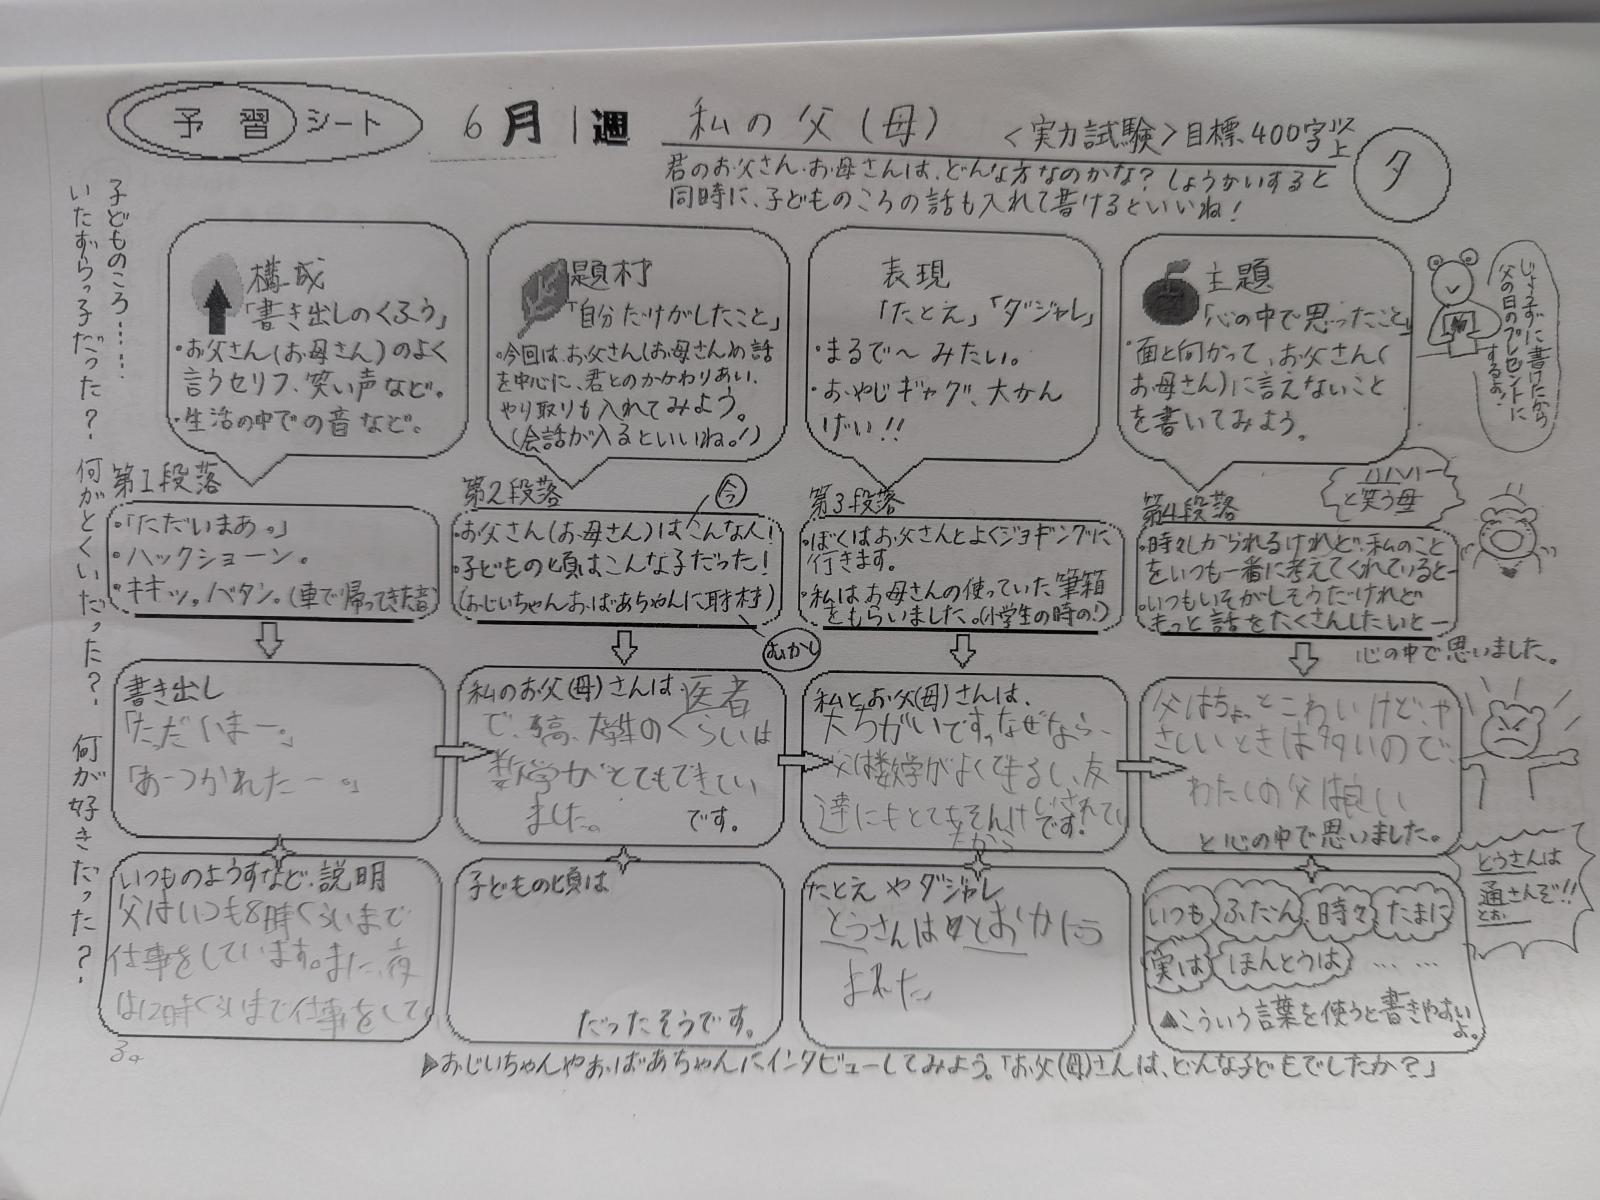 予習シート
6月1週
私の父(母)
<実力試験>目標、400字以上
夕
君のお父さん・お母さんは、どんな方なのかな?しょうかいすると
同時に、子どものころの話も入れて書けるといいね!
子どものころ……
いたずらっ子だった?何がとくいだった?何が好きだった?
構成
「書き出しのくふう」
・お父さん(お母さん)のよく
言うセリフ、笑い声など。
・生活の中での音など。
題材
「自分だけがしたこと」
・今回は、お父さん(お母さん)の話
を中心に、君とのかかわりあい、
やり取りも入れてみよう。
(会話が入るといいね。!)
表現
「たとえ」「ダジャレ」
・まるで〜みたい。
・おやじギャグ、大かん
げい!!
主題
「心の中で思ったこと」
・面と向かって、お父さん(
お母さん)に言えないこと
を書いてみよう。
じょうずに書けたから
父の日のプレゼントに
するよ!
第1段落
・「ただいまあ。」
・ハックショーン。
・キキッ。バタン。(車で帰ってきた音)
第2段落
今
お父さん(お母さん)はこんな人!
・子どもの頃はこんな子だった!
(おじいちゃんおばあちゃんに取材)
むかし
第3段落
・ぼくはお父さんとよくジョギングに
行きます。
・私はお母さんの使っていた筆箱
をもらいました。(小学生の時の!)
ハハハー
と笑う母
第4段落
・時々しかられるけれど、私のこと
をいつも一番に考えてくれていると—
・いつもいそがしそうだけれど
もっと話をたくさんしたいと—
心の中で思いました。
書き出し
「ただいまー。」
「あーつかれたー。」
私のお父(母)さんは医者
で、高、大学のくらいは
数学がとてもできてい
ました。
です。
私とお父(母)さんは、
大ちがいです。なぜなら、
父は数学がよくできるし、友
達にもとてもそんけいされてい
るから
です。
父はちょっとこわいけど、や
さしいときは多いので、
わたしの父は良い
と心の中で思いました。
いつものようすなど、説明
父はいつも8時くらいまで
仕事をしています。また、夜
は12時くらいまで仕事をして
子どもの頃は
だったそうです。
たとえやダジャレ
とうさんはとおかにう
まれた
いつも ふだん 時々 たまに
実は ほんとうは ……
▲こういう言葉を使うと書きやすい
よ。
とうさんは
通さんぞ!!
とお
▶おじいちゃんやおばあちゃんにインタビューしてみよう。「お父(母)さんは、どんな子どもでしたか?」